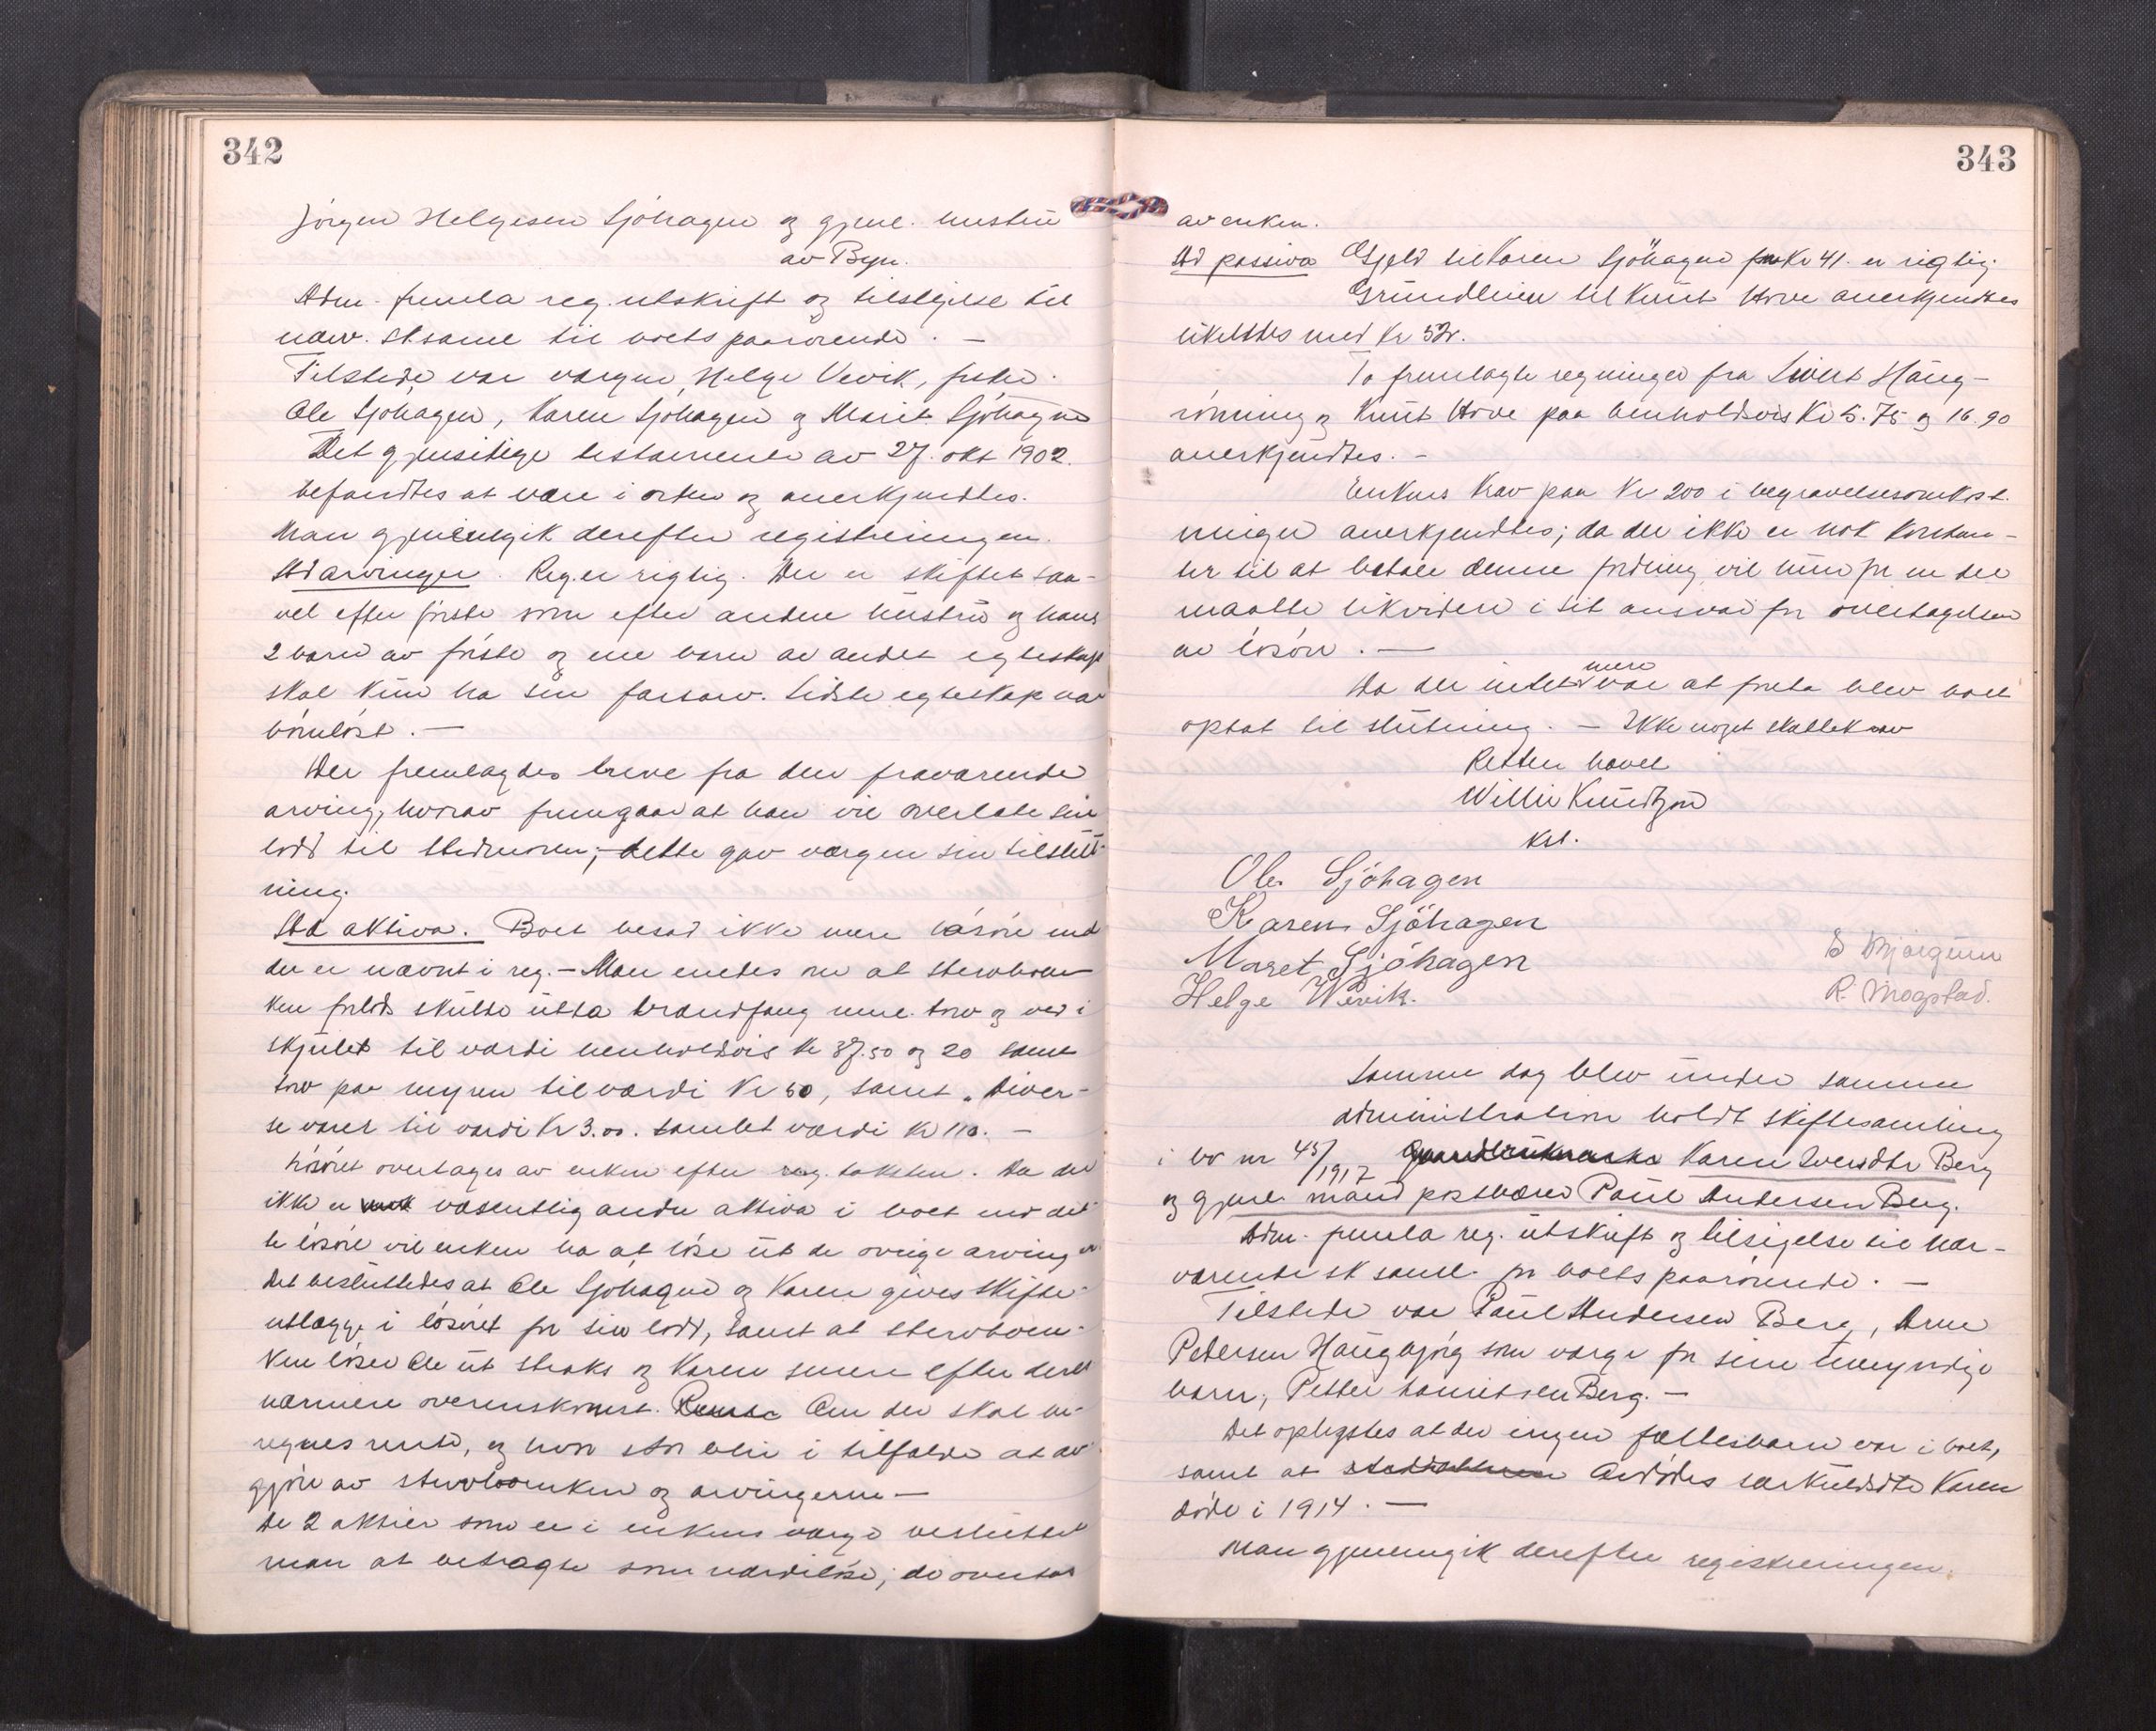 342
Jörgen Helgesen Sjöhagen og gjenl. hustru
av Byn.
Adm. fremla reg. utskrift og tilsigelse til
nærv. sksaml til boets paarörende. —
Tilstede var vergen Helge Vevik, 
Ole Sjöhagen, Karen Sjöhagen og Maret Sjöhagen
Det gjensidige testamente av 27. okt 1902.
befandtes at være i orden og anerkjendtes.
Man gjennemgik derefter registreringen.
Ad arvinger. Reg. er rigtig. Der er skiftet saa-
vel efter förste som efter anden hustru og hans
2 barn av förste og ene barn av andet egteskap
skal kun ha sin farsarv. Sidste egteskap var
barnlöst. —
Der fremlagdes breve fra den fraværende
arving, hvorav fremgaar at han vil overlate sin
lodd til stedmoren; dette gav vergen sin tilslut-
ning.
Ad aktiva. Boet besad ikke mere lösöre end
der er nævnt i reg. — Man enedes om at sterbboen-
ken forlods skulde utta brændfang nml. torv og ved i
skjulet til værdi henholdsvis kr 37.50 og 20 samt
torv paa myren til værdi Kr 50, samt "diver-
se varer til værdi Kr 3.00. samlet værdi kr 110. —
Lösöret overtages av enken efter reg. taksten. Da det
ikke er væsentlig andre aktiva i boet end det-
te lösöre vil enken ha at löse ut de övrige arvinger
Det besluttedes at Ole Sjöhagen og Karen gives skifte-
utlægg i lösöret for sin lodd, samt at sterboen-
ken löser Ole ut straks og Karen senere efter deres
nærmere overenskomst. Om der skal be-
regnes rente, og hvor stor blir i tilfælde at av-
gjöre av sterbboenken og arvingerne —
De 2 aktier som er i enkens værge besluttet
man at betragte som værdilöse; de overtas
343
av enken.
Ad passiva Gjeld til Karen Sjöhagen Kr 41. er rigtig.
Grundleien til Knut Hove anerkjendtes
likeledes med Kr 52.
To fremlagte regninger fra Sivert Haug-
rönning og Knut Hove paa henholdsvis Kr 5.75 og 16.90
anerkjendtes. —
Enkens krav paa Kr 200 i begravelsesomkost-
ninger anerkjendtes; da der ikke er nok kontan-
ter til at betale denne fordring vil hun for en del
maatte likvidere i sit ansvar for overtagelsen
av lösöre. —
Da der intet mere var at foreta blev boet
optat til slutning. — Ikke noget skattekrav
Retten hævet
Willie Knudtzon
kst.
Ole Sjöhagen
Karen Sjöhagen
Maret Sjöhagen
Helge Wevik.
R. Mogstad.
Samme dag blev under samme
administration holdt skiftesamling
i bo nr 45/1917 Karen Svendtr Berg
og gjenl. mand postbærer Paul Andersen Berg.
Adm. fremla reg. utskrift og tilsigelse til nær-
værende sksaml. for boets paarörende. —
Tilstede var Paul Andersen Berg, Arne
Petersen Haugbjörg som verge for sine umyndige
barn, Petter Lauritsen Berg. —
Det oplystes at der ingen fællesbarn var i boet,
samt at avdödes særkuldsdtr Karen
döde i 1914. —
Man gjennemgik derefter registreringen.